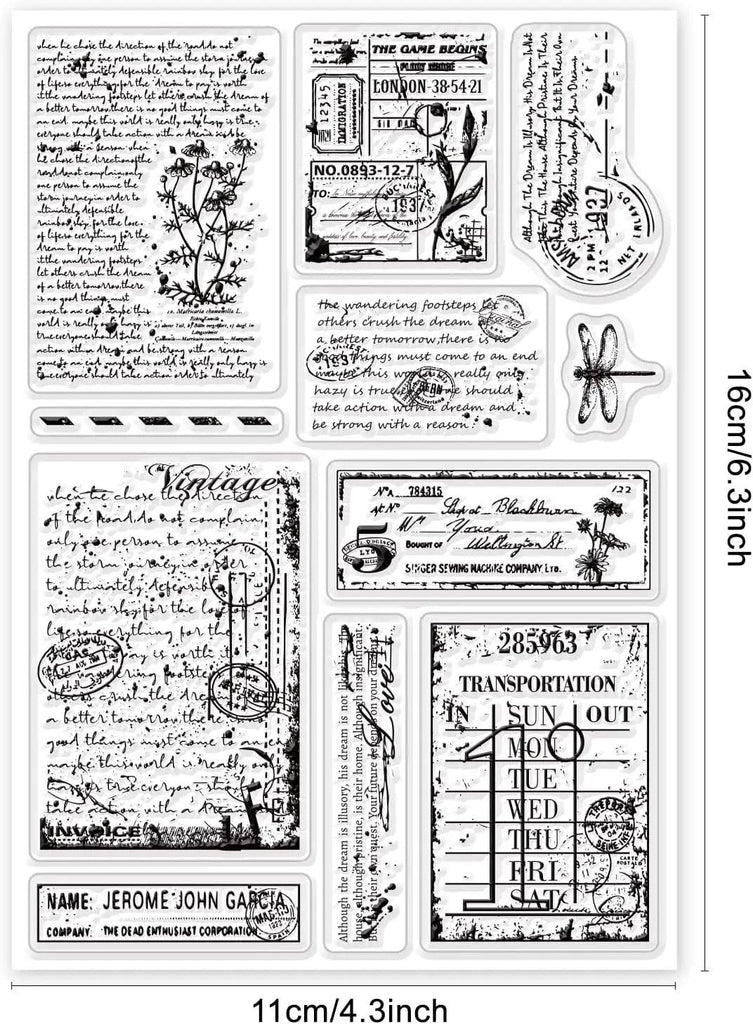 when he chose the direction of the road.do not
complain,only one person to assume the storm journey.in
order to ultimately defeasible rainbow shy.for the love
of life.so everything for the Dream to pay is worth
it.the wandering footsteps let others crush the dream of
a better tomorrow.there is no good things must come to
an end. maybe this world is really only hazy is true
everyone should take action with a Dream and be
strong with a season. when
he chose the direction of the
road.do not complain,only
one person to assume the
storm journey.in order to
ultimately defeasible
rainbow shy.for the love
of life.so everything for the
Dream to pay is worth
it.the wandering footsteps
let others crush the dream
of a better tomorrow.there
is no good things must
come to an end. maybe this
world is really only hazy is
true.everyone should take
action with a Dream and be strong with a reason.
come to an end. maybe this world is really only hazy is
true.everyone should take action order to ultimately
10. Matricaria chamomilla L.
THE GAME BEGINS
LONDON-38-54-21
12345
IMMIGRATION
NO.0893-12-7
TO:
1937
Although The Dream Is Illusory, His Dream Is Not
1937
2 PM
12
the wandering footsteps let
others crush the dream of
a better tomorrow,there is no
good things must come to an end
maybe this world is really only
hazy is true.everyone should
take action with a dream and
be strong with a reason.
1937
BERN
Vintage
when he chose the direction
of the road.do not complain,
only one person to assume
the storm journey.in order
to ultimately defeasible
rainbow shy.for the love of
life.so everything for the
Dream to pay is worth it.the
wandering footsteps let
others crush the Dream of
a better tomorrow.there is no
good things must come to an end
maybe this world is really only
hazy is true.everyone should
take action with a Dream and
INVOICE
No. 784315
122
Sgd at Blackburn
5
Bought of Wellington St
SINGER SEWING MACHINE COMPANY, LTD.
Although the dream is illusory, his dream is not likely. The
house, although pristine, is their home. Although insignificant
But it is their own quest. Your future depends on your dreams
Love it
285963
TRANSPORTATION
IN SUN OUT
MON
TUE
WED
THU
FRI
SAT
1º
CARTE POSTALE
NAME: JEROME JOHN GARCIA
COMPANY. THE DEAD ENTHUSIAST CORPORATION
SPAIN
16cm/6.3inch
11cm/4.3inch